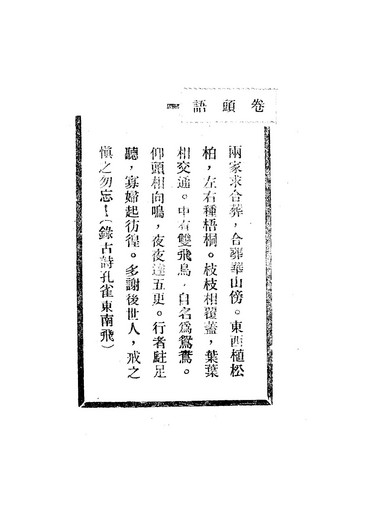 卷頭語
兩家求合葬，合葬華山傍。東西植松
柏，左右種梧桐。枝枝相覆蓋，葉葉
相交通。中有雙飛鳥，自名爲鴛鴦。
仰頭相向鳴，夜夜達五更。行者駐足
聽，寡婦起彷徨。多謝後世人，戒之
愼之勿忘！（錄古詩孔雀東南飛）